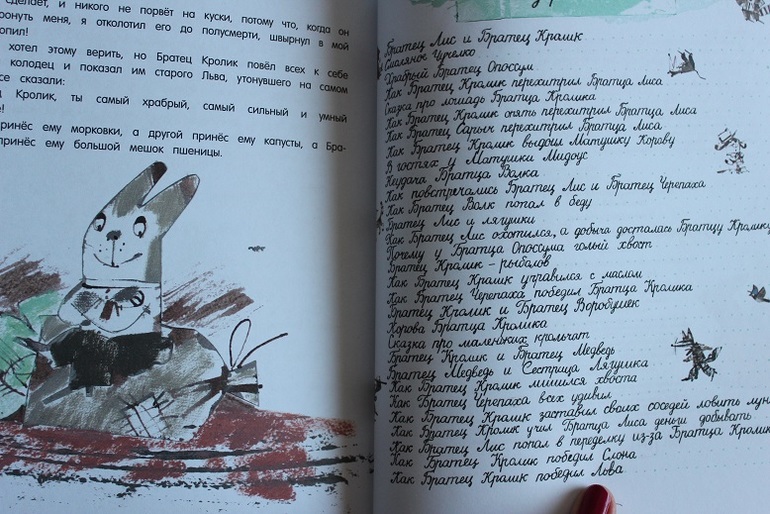 сделает, и никого не порвёт на куски, потому что, когда он
ронуть меня, я отколотил его до полусмерти, швырнул в мой
опил!
хотел этому верить, но Братец Кролик повёл всех к себе
колодец и показал им старого Льва, утонувшего на самом
се сказали:
ц Кролик, ты самый храбрый, самый сильный и умный
е!
ринёс ему морковки, а другой принёс ему капусты, а Бра-
принёс ему большой мешок пшеницы.
Братец Лис и Братец Кролик
Смоляное Чучелко
Храбрый Братец Опоссум
Как Братец Кролик перехитрил Братца Лиса
Сказка про лошадь Братца Кролика
Как Братец Кролик опять перехитрил Братца Лиса
Как Братец Сарыч перехитрил Братца Лиса
Как Братец Кролик выдоил Матушку Корову
В гостях у Матушки Мидоус
Неудача Братца Волка
Как повстречались Братец Лис и Братец Черепаха
Как Братец Волк попал в беду
Братец Лис и лягушки
Как Братец Лис охотился, а добыча досталась Братцу Кролику
Почему у Братца Опоссума голый хвост
Братец Кролик - рыболов
Как Братец Кролик управился с маслом
Как Братец Черепаха победил Братца Кролика
Братец Кролик и Братец Воробушек
Корова Братца Кролика
Сказка про маленьких крольчат
Братец Кролик и Братец Медведь
Братец Медведь и Сестрица Лягушка
Как Братец Кролик лишился хвоста
Как Братец Черепаха всех удивил
Как Братец Кролик заставил своих соседей ловить лун
Как Братец Кролик учил Братца Лиса деньги добывать
Как Братец Лис попал в переделку из-за Братца Кролик
Как Братец Кролик победил Слона
Как Братец Кролик победил Лова